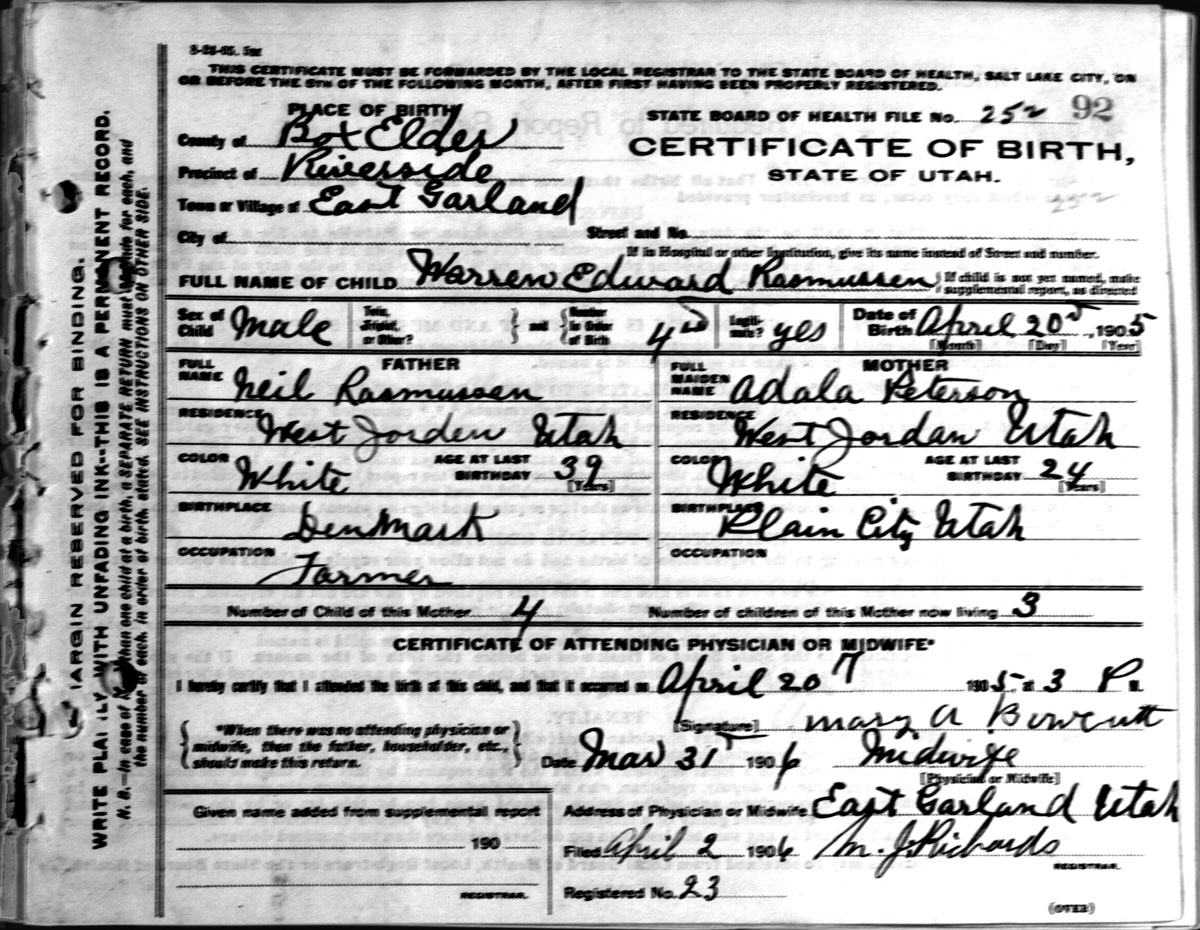 8-28-05. 5M
THIS CERTIFICATE MUST BE FORWARDED BY THE LOCAL REGISTRAR TO THE STATE BOARD OF HEALTH, SALT LAKE CITY, ON
OR BEFORE THE 5TH OF THE FOLLOWING MONTH, AFTER FIRST HAVING BEEN PROPERLY REGISTERED.
PLACE OF BIRTH
County of Box Elder
Precinct of Riverside
Town or Village of East Garland
City of
STATE BOARD OF HEALTH FILE No. 252 92
CERTIFICATE OF BIRTH,
STATE OF UTAH.
252
Street and No.
If in Hospital or other Institution, give its name instead of Street and number.
FULL NAME OF CHILD Warren Edward Rasmussen
If child is not yet named, make
supplemental report, as directed
Sex of Child Male
Twin, Triplet, or Other?
and
Number in Order of Birth 4
Legiti-mate? yes
Date of Birth April 20 1905
[Month] [Day] [Year]
FATHER
FULL NAME Neil Rasmussen
RESIDENCE West Jorden Utah
COLOR White
AGE AT LAST BIRTHDAY 39
[Years]
BIRTHPLACE Denmark
OCCUPATION Farmer
MOTHER
FULL MAIDEN NAME Adala Peterson
RESIDENCE West Jordan Utah
COLOR White
AGE AT LAST BIRTHDAY 24
[Years]
BIRTHPLACE Plain City Utah
OCCUPATION
Number of Child of this Mother 4
Number of children of this Mother now living 3
CERTIFICATE OF ATTENDING PHYSICIAN OR MIDWIFE*
I hereby certify that I attended the birth of this child, and that it occurred on April 20 1905 at 3 P.M.
*When there was no attending physician or
midwife, then the father, householder, etc.,
should make this return.
[Signature] Mary A Bowcutt
Date Mar 31 1906 Midwife
[Physician or Midwife]
Given name added from supplemental report
190
REGISTRAR.
Address of Physician or Midwife East Garland Utah
Filed April 2 1906 M. J. Richards
REGISTRAR.
Registered No. 23
(OVER)
MARGIN RESERVED FOR BINDING.
WRITE PLAINLY WITH UNFADING INK--THIS IS A PERMANENT RECORD.
N. B.—In case of more than one child at a birth, a SEPARATE RETURN must be made for each, and
the number of each, in order of birth, stated. SEE INSTRUCTIONS ON OTHER SIDE.